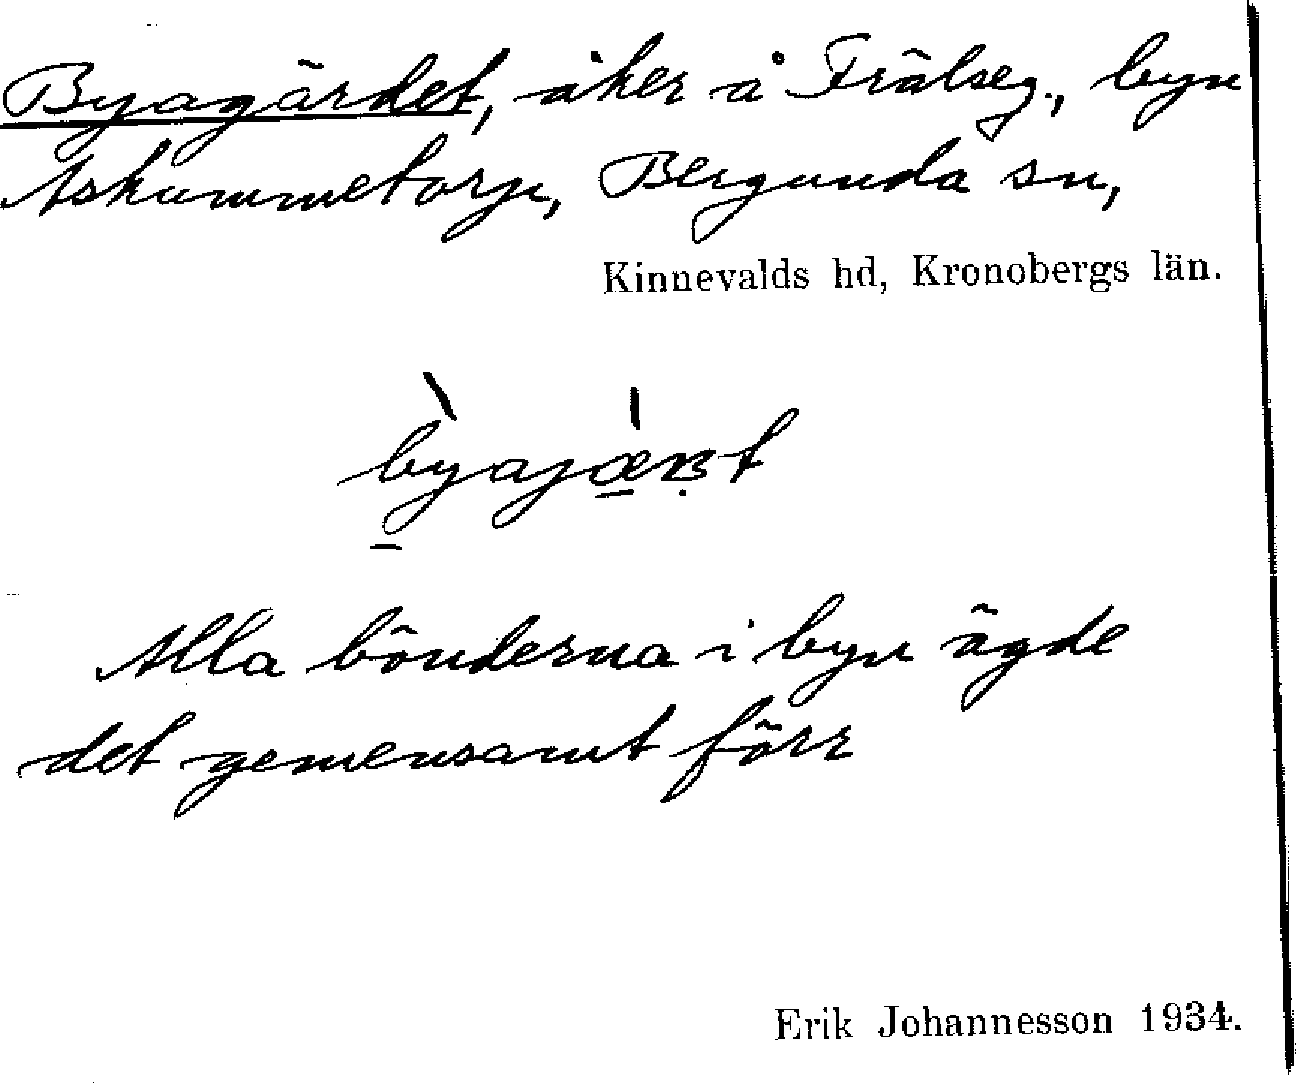 Byagärdet, åker å Frälseg., byn
Askummetorp, Bergunda sn,
Kinnevalds hd, Kronobergs län.
Alla bönderna i byn ägde
det gemensamt förr
Erik Johannesson 1934.